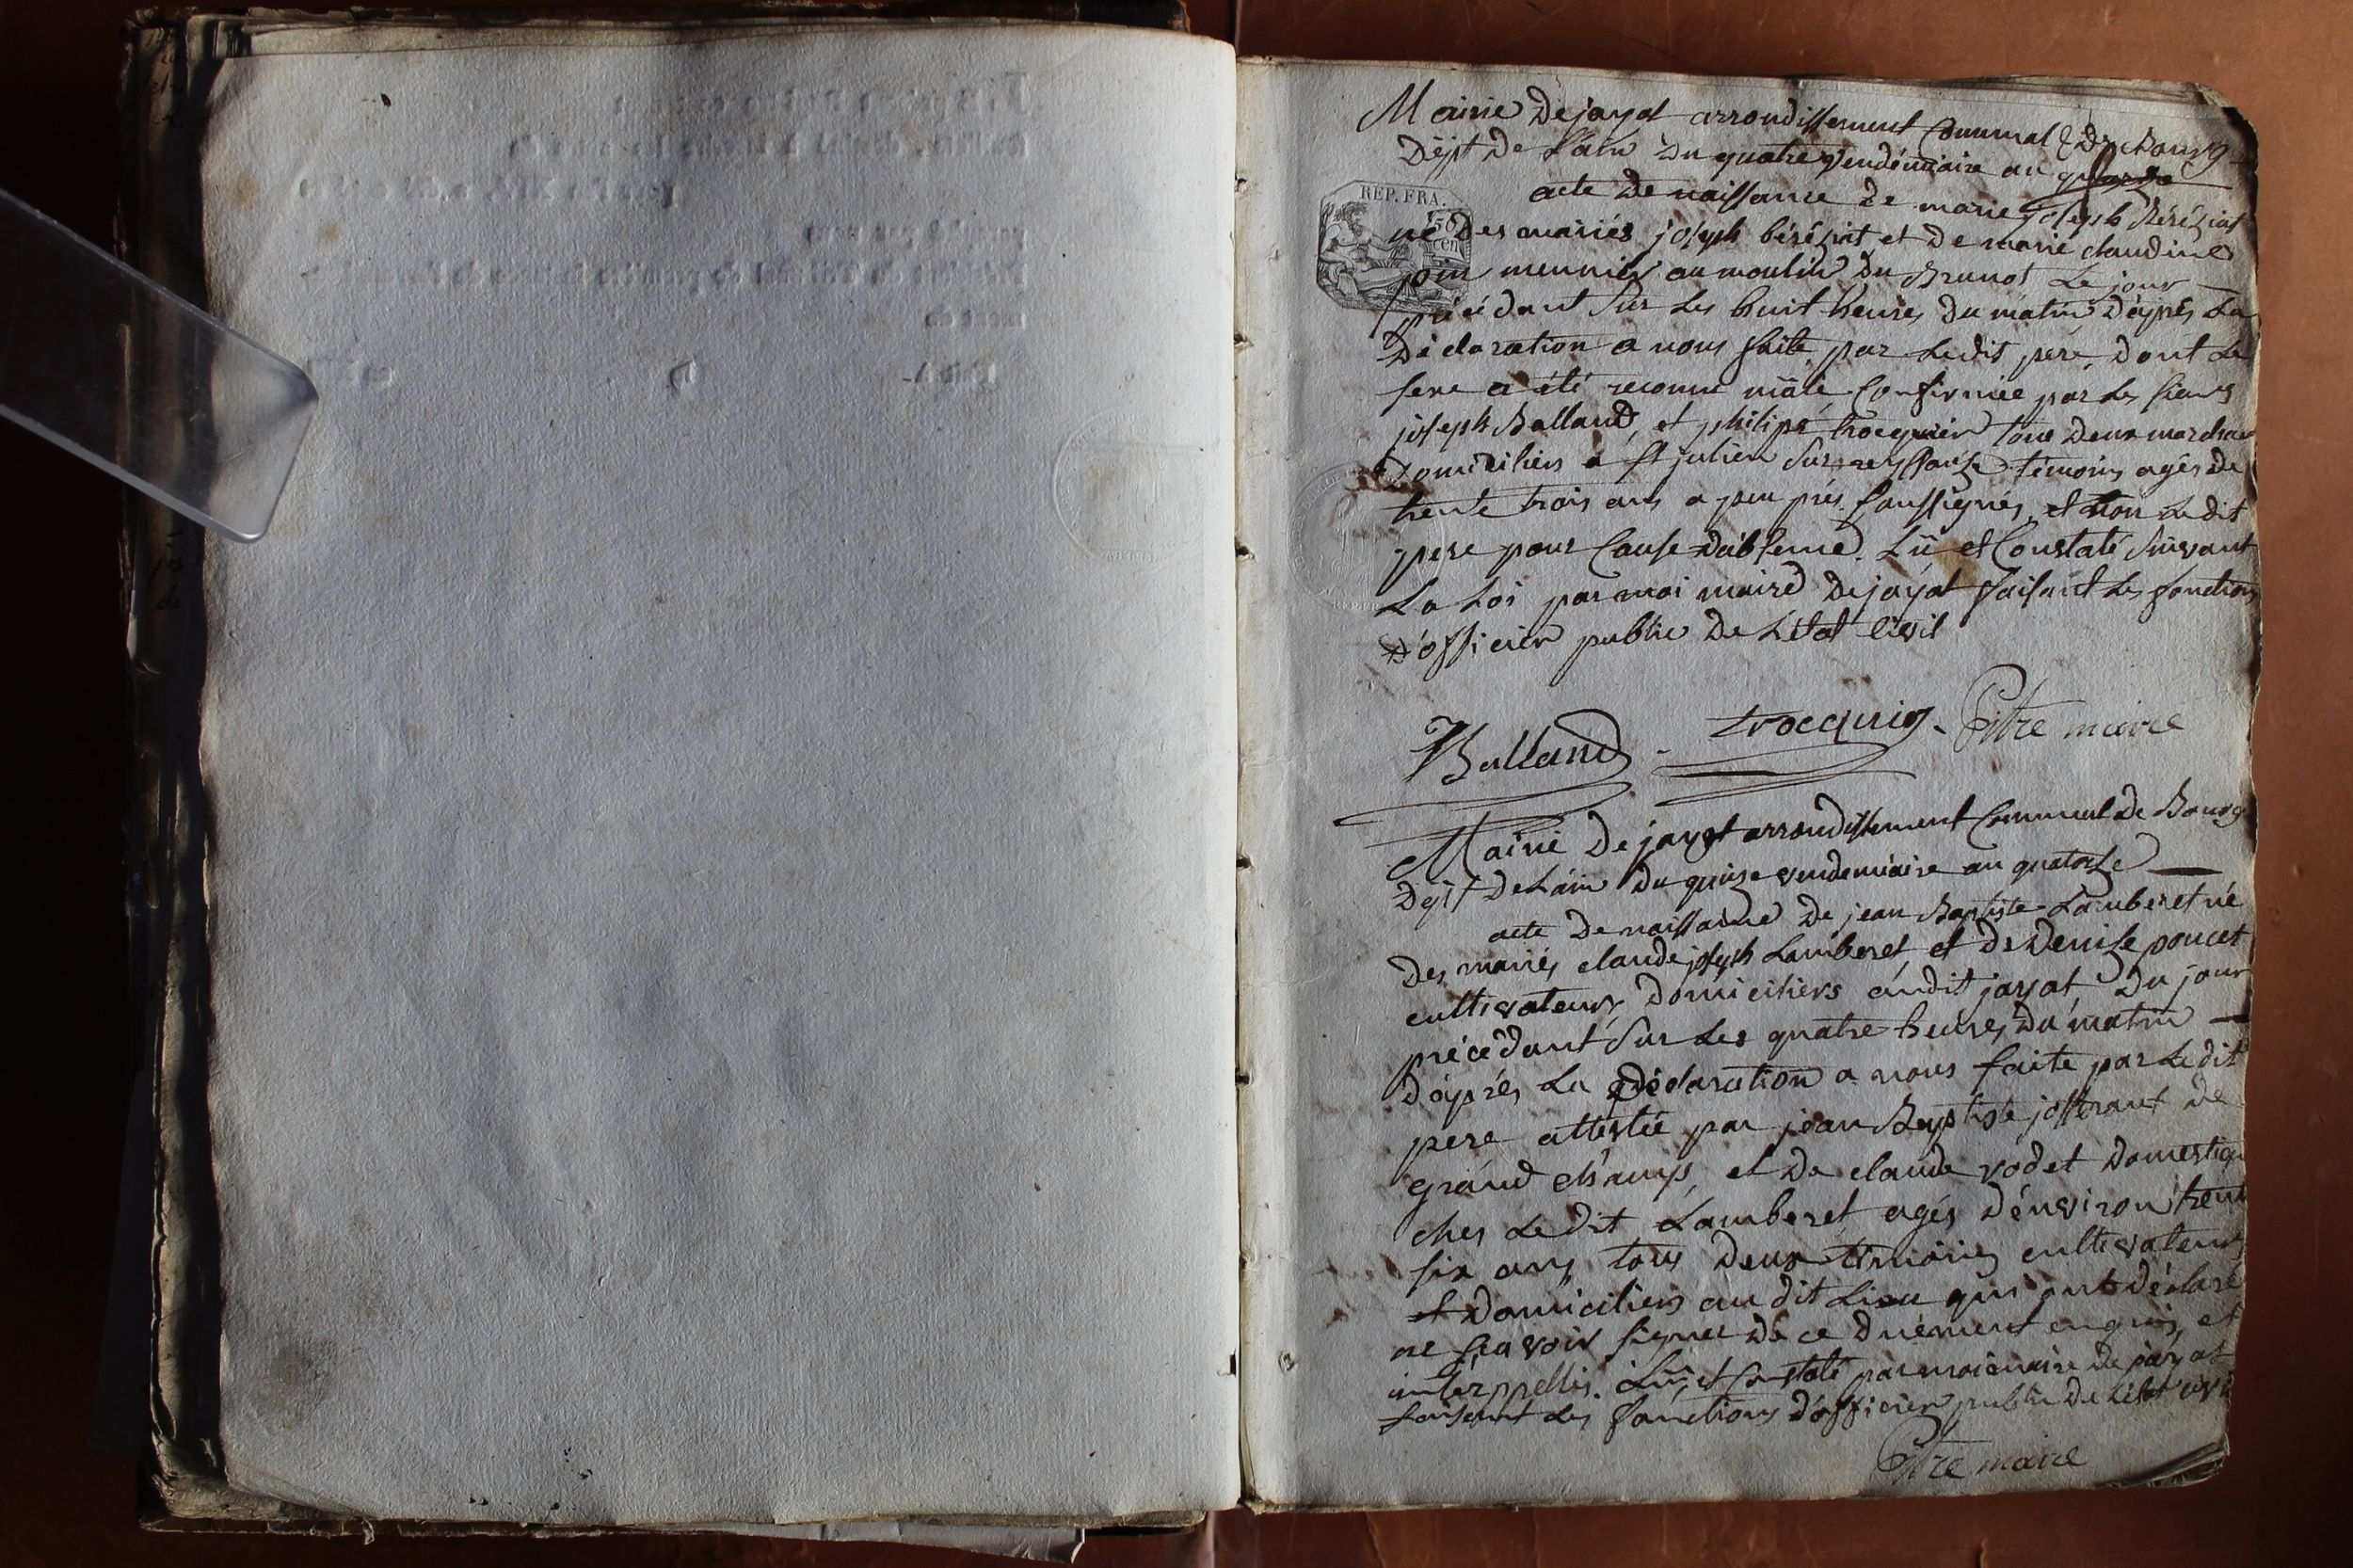 Mairie De jayat arrondissement Communal De Bourg
Dépt De L'ain Du quatre vendémiaire an quatorze
acte De naissance De marie joseph Bérésiat
REP. FRA.
50 cen
né Des mariés joseph bérésiat et De marie claudine
meunier au moulin Du Brunot Le jour
précédant Sur Les huit heures Du matin D'après La
Déclaration a nous faite par Ledit pere, Dont Le
sexe a été reconnu mâle Confirmée par Les sieurs
joseph Balland, et philipe trocquier tous Deux marchan
Domiciliers a St julien Sur reyssouse témoins agés De
trente trois ans a peu près Soussignés, et non Le dit
pere pour Cause D'absence. Lû et Constaté Suivant
La Loi par moi maire De jayat faisant Les fonctions
D'officier public De L'état Civil
Balland - trocquier - Pitre maire
Mairie De jayat arrondissement Communal De Bourg
Dépt De L'ain Du quinze vendemiaire an quatorze
acte De naissance De jean Baptiste Lamberet né
Des mariés claude joseph Lamberet et De Denise poncet
cultivateurs Domiciliers audit jayat, Du jour
précédant Sur Les quatre heures Du matin
D'après La Déclaration a nous faite par Le dit
pere attestée par jean Baptiste josserant De
grand champs, et De claude vodet Domestiqu
ches Le dit Lamberet agés D'environ trent
six ans tous Deux témoins cultivateurs
et Domiciliers au dit Lieu qui ont Déclaré
ne sçavoir signer De ce Duement enquis, et
interppellés. Lû, et Constaté par moi maire De jayat
faisant Les fonctions D'officier public De L'état civi
Pitre maire